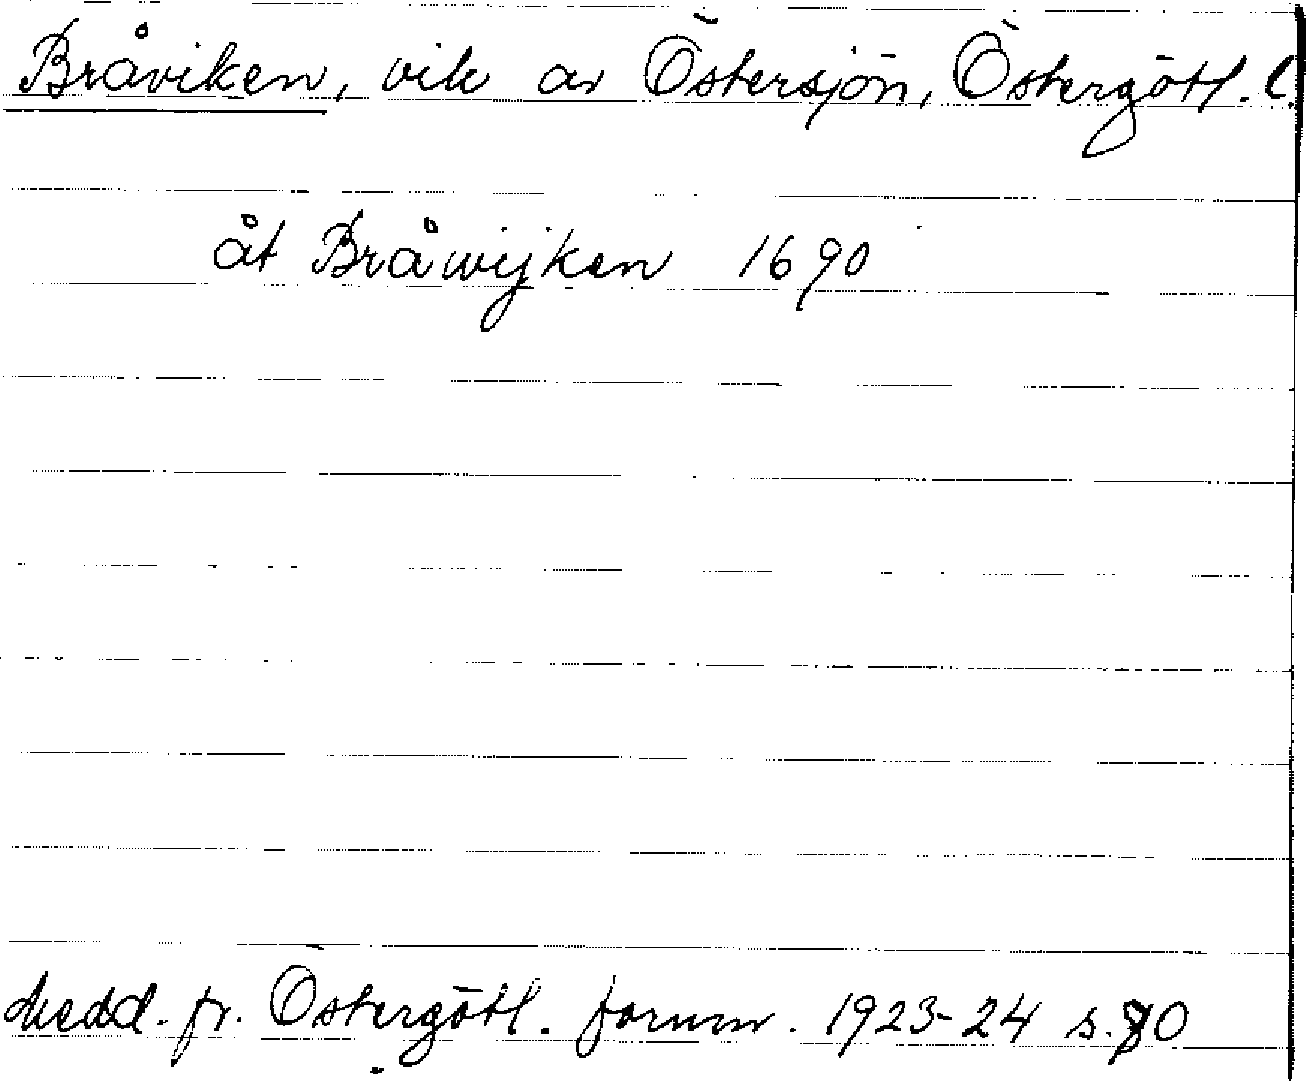 Bråviken, vik av Östersjön, Östergötl. l.
åt Bråwijken 1690
Medd. fr. Östergötl. fornm. 1923-24 s.